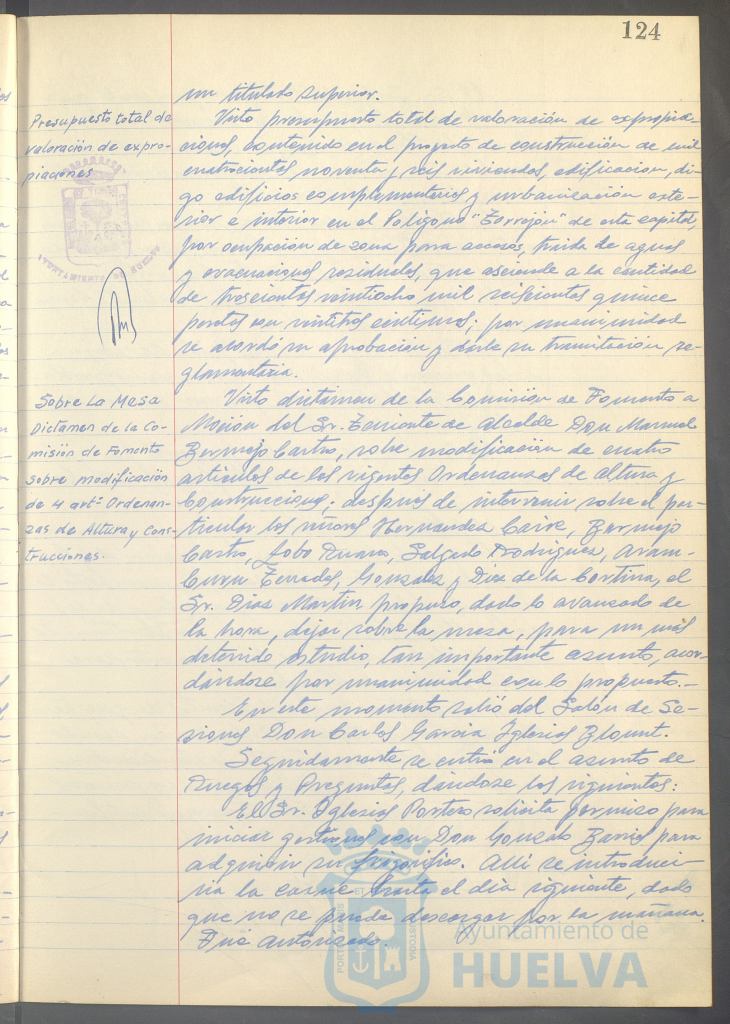 124
un titulado superior.
Presupuesto total de
valoración de expro-
piaciones
Visto presupuesto total de valoración de expropia-
ciones, contenido en el proyecto de construcción de mil
cuatrocientas noventa y seis viviendas, edificacion, di-
go edificios complementarios y urbanización exte-
rior e interior en el Polígono "Torrejón" de esta capital,
por ocupación de zona para accesos, traida de aguas
y evacuaciones residuales, que asciende a la cantidad
de trescientas veintiocho mil seiscientas quince
pesetas con veintitres centimos; por unanimidad
se acordó su aprobación y darle su tramitación re-
glamentaria.
Sobre La Mesa
Dictámen de la Co-
misión de Fomento
sobre modificación
de 4 artº Ordenan-
zas de Altura y Cons-
trucciones.
Visto dictámen de la Comisión de Fomento a
Moción del Sr. Teniente de Alcalde Don Manuel
Bermejo Castro, sobre modificación de cuatro
artículos de las vigentes Ordenanzas de Altura y
Construcciones; después de intervenir sobre el par-
ticular los señores Hernandez Caire, Bermejo
Castro, Lobo Duran, Salgado Rodriguez, Aram-
buru Terrades, Gonzalez y Diez de la Cortina, el
Sr. Diaz Martin propuso, dado lo avanzado de
la hora, dejar sobre la mesa, para un más
detenido estudio, tan importante asunto, acor-
dándose por unanimidad con lo propuesto.-
En este momento salió del Salón de Se-
siones Don Carlos Garcia Iglesias Blount.
Seguidamente se entró en el asunto de
Ruegos y Preguntas, dándose los siguientes:
El Sr. Iglesias Portero solicita permiso para
iniciar gestiones con Don Gonzalo Barrios para
adquirir su frigorífico. Alli se introduci-
ria la carne hasta el día siguiente, dado
que no se puede descargar por la mañana.
Fué autorizado.
Ayuntamiento de
HUELVA